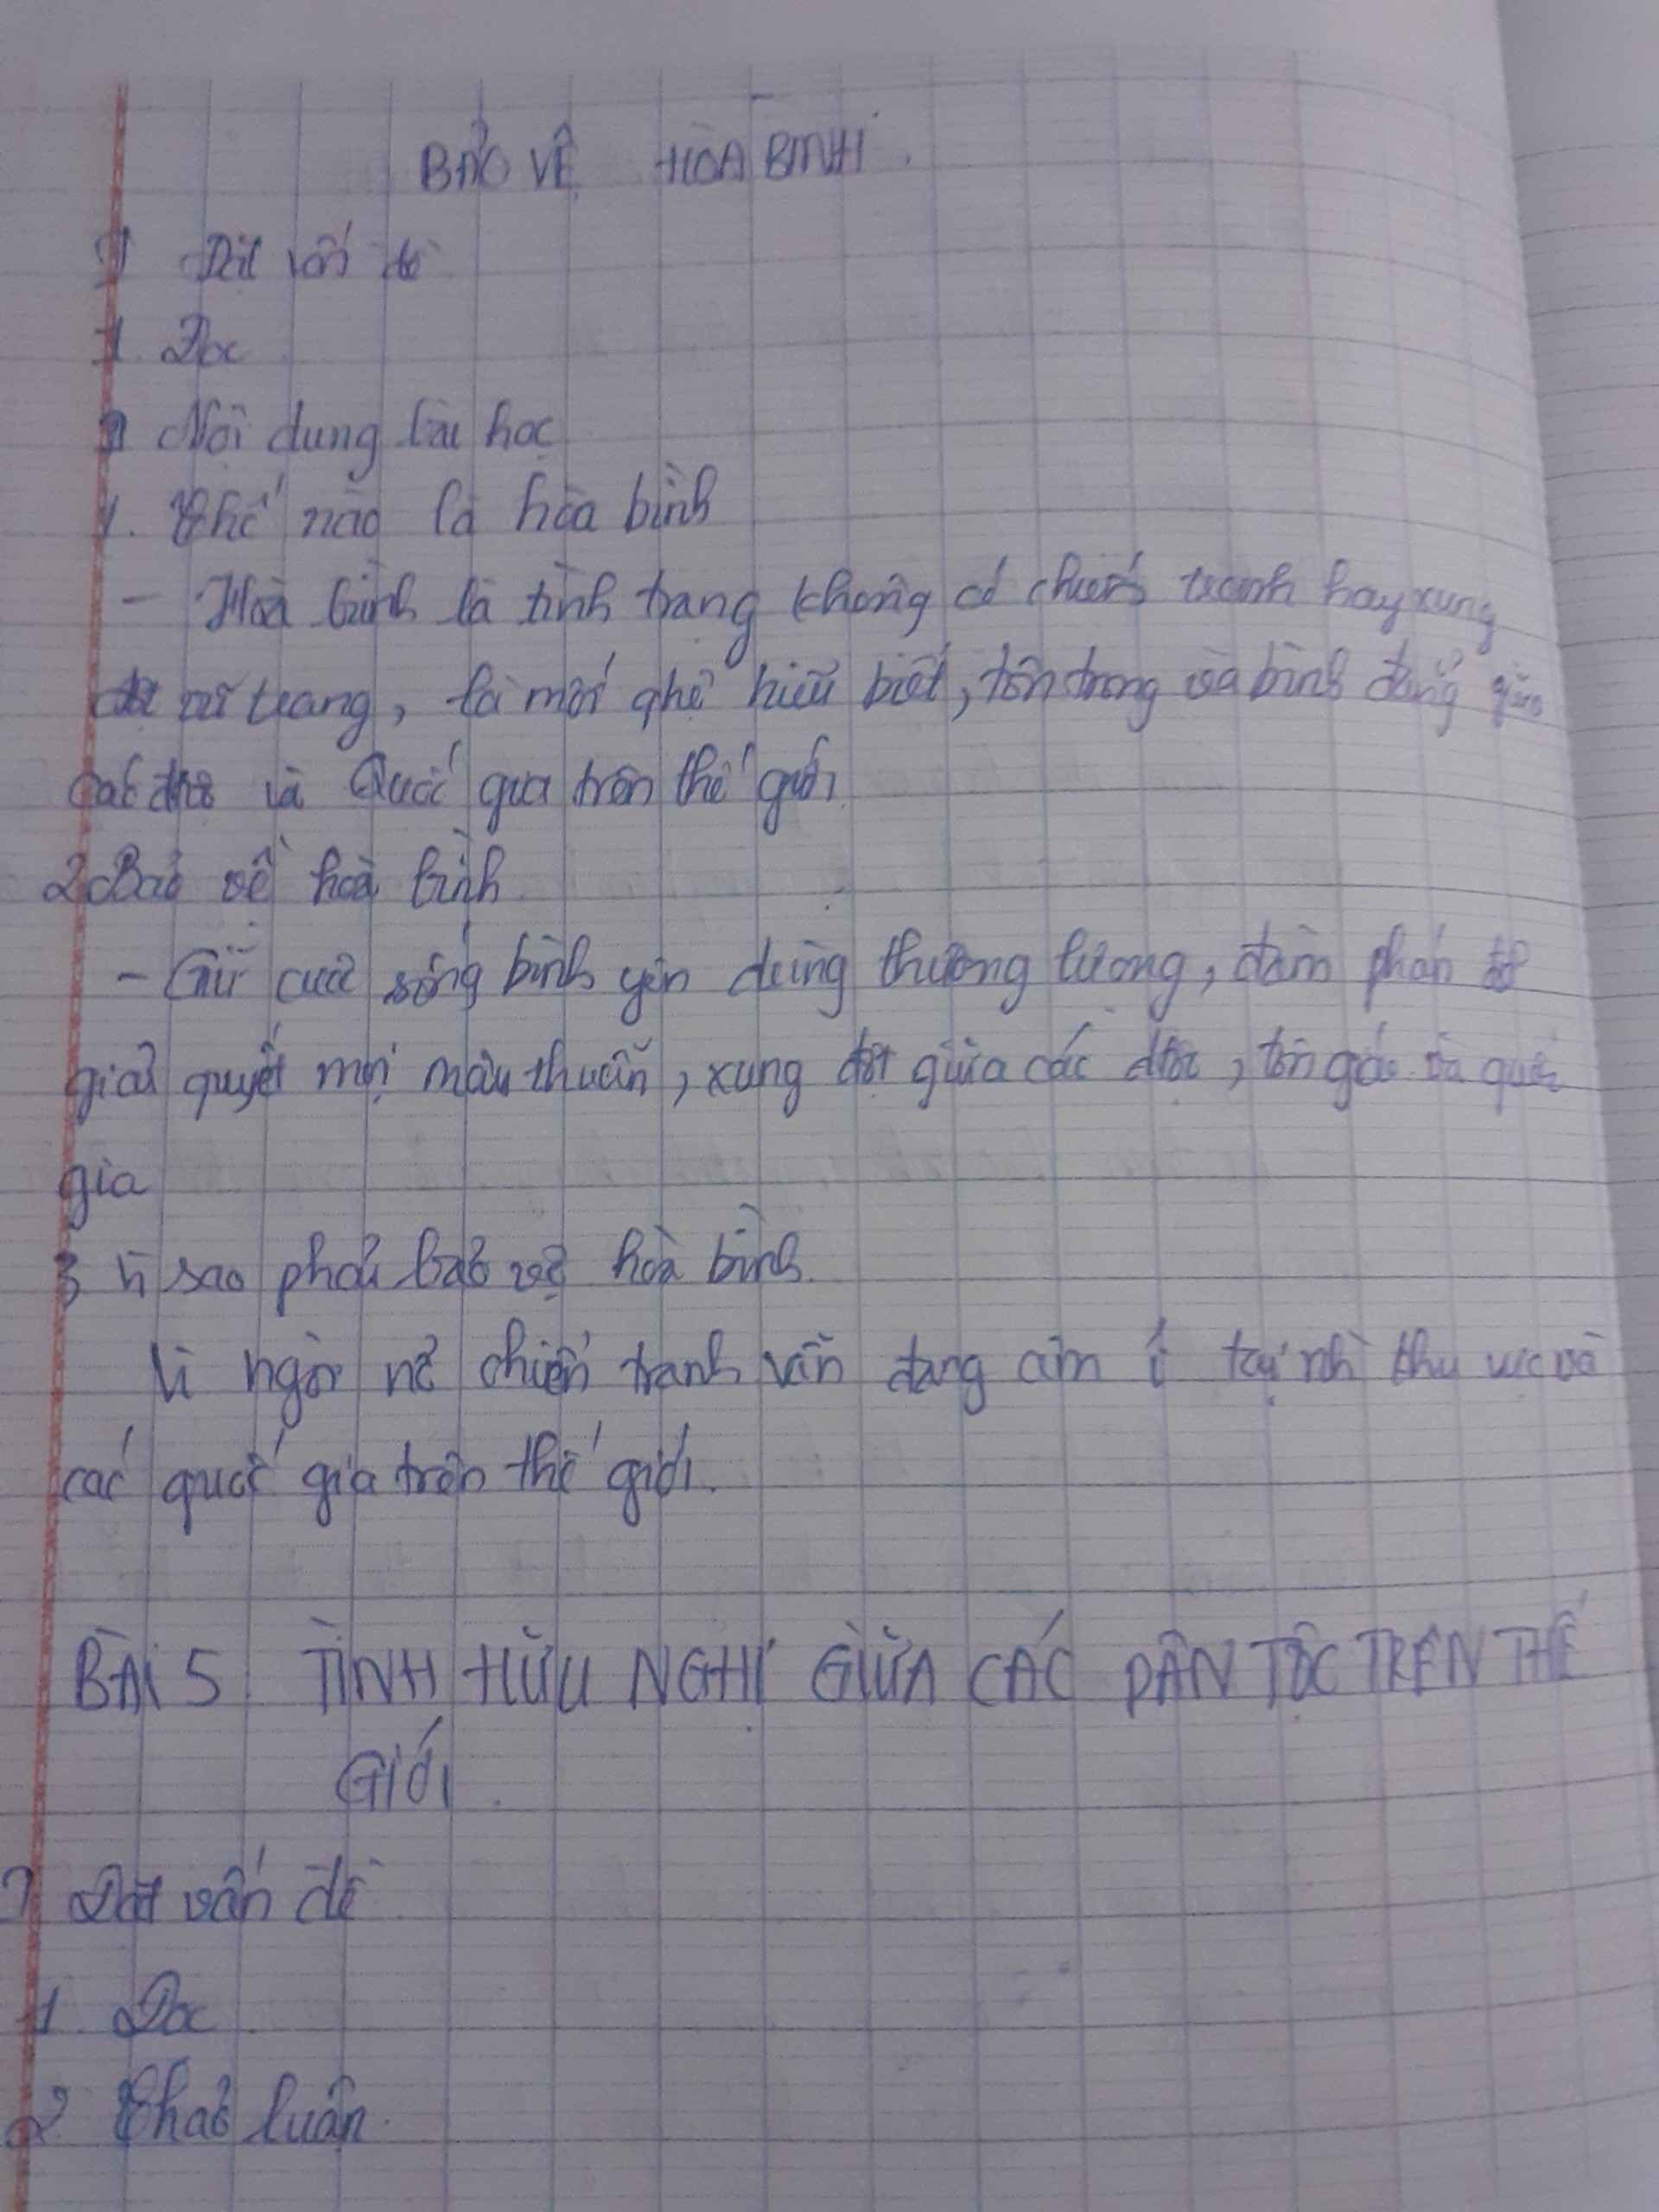 BẢO VỆ HÒA BÌNH.
Đặt vấn đề
1. Đọc
Nội dung bài học
1. Thế nào là hòa bình
- Hoà bình là tình trạng không có chiến tranh hay xung
đột vũ trang, là mối qhệ hiểu biết, tôn trọng và bình đẳng giữa
các dtộc và Quốc gia trên thế giới
2. Bảo vệ hoà bình
- Giữ cuộc sống bình yên dùng thương lượng, đàm phán để
giải quyết mọi mâu thuẫn, xung đột giữa các dtộc, tôn giáo và quốc
gia
3 Vì sao phải bảo vệ hoà bình.
Vì ngòi nổ chiến tranh vẫn đang âm ỉ tại nh` khu vực và
các quốc gia trên thế giới.
BÀI 5 TÌNH HỮU NGHỊ GIỮA CÁC DÂN TỘC TRÊN THẾ
GIỚI.
Đặt vấn đề
1. Đọc
2 Thảo luận.